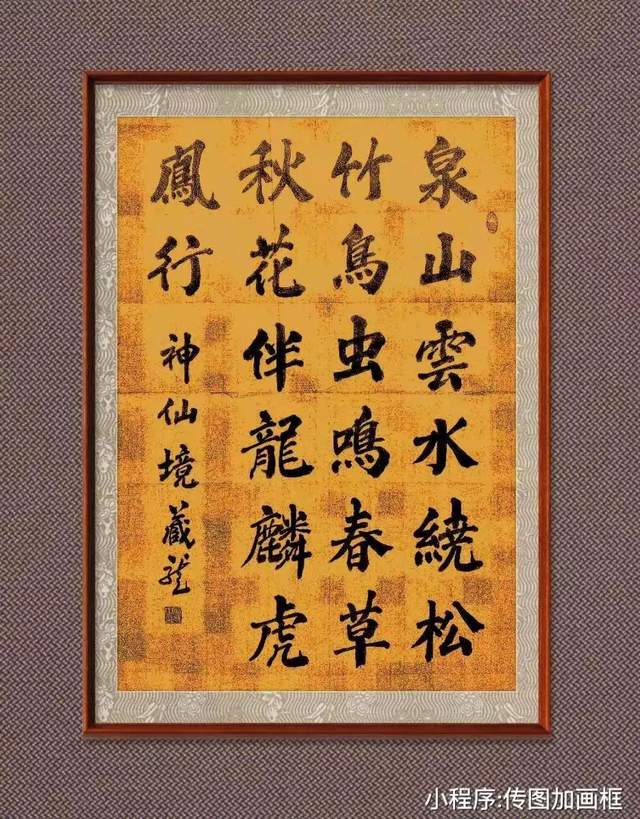 泉山雲水繞松
竹鳥虫鳴春草
秋花伴龍麟虎
鳳行
神仙境藏龍
小程序:传图加画框